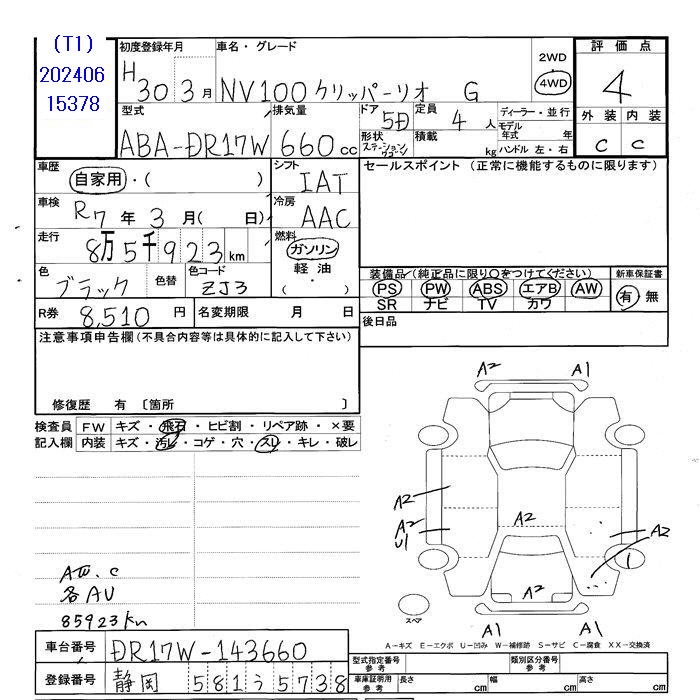 (T1)
202406
15378
初度登録年月
H 30 3 月
車名・グレード
NV100クリッパーリオ G
2WD
4WD
評価点
4
外装 内装
C C
型式
ABA-DR17W
排気量
660 cc
ドア
5D
形状
ステーションワゴン
定員
4 人
積載
kg
ディーラー・並行
モデル年式 年
ハンドル 左・右
車歴
自家用・( )
シフト
IAT
セールスポイント (正常に機能するものに限ります)
車検
R7 年 3 月( 日)
冷房
AAC
走行
8万5千923 km
燃料
ガソリン
軽油
( ・ )
色
ブラック
色替
色コード
ZJ3
装備品(純正品に限り○をつけてください)
PS PW ABS エアB AW
SR ナビ TV カワ
新車保証書
有 無
R券 8,510 円
名変期限 月 日
後日品
注意事項申告欄(不具合内容等は具体的に記入して下さい)
修復歴 有 〔箇所 〕
検査員 FW キズ・飛石・ヒビ割・リペア跡・×要
記入欄 内装 キズ・汚レ・コゲ・穴・スレ・キレ・破レ
A2 A1
A2
A2
U1
A2
A2
A2
1
スペア
A1 A1
C
各AU
85923km
A-キズ E-エクボ U-凹み W-補修跡 S-サビ C-腐食 XX-交換済
車台番号 DR17W-143660
登録番号 静岡 581 う 5738
型式指定番号 参考
類別区分番号 参考
車庫証明用 参考
長さ cm
幅 cm
高さ cm